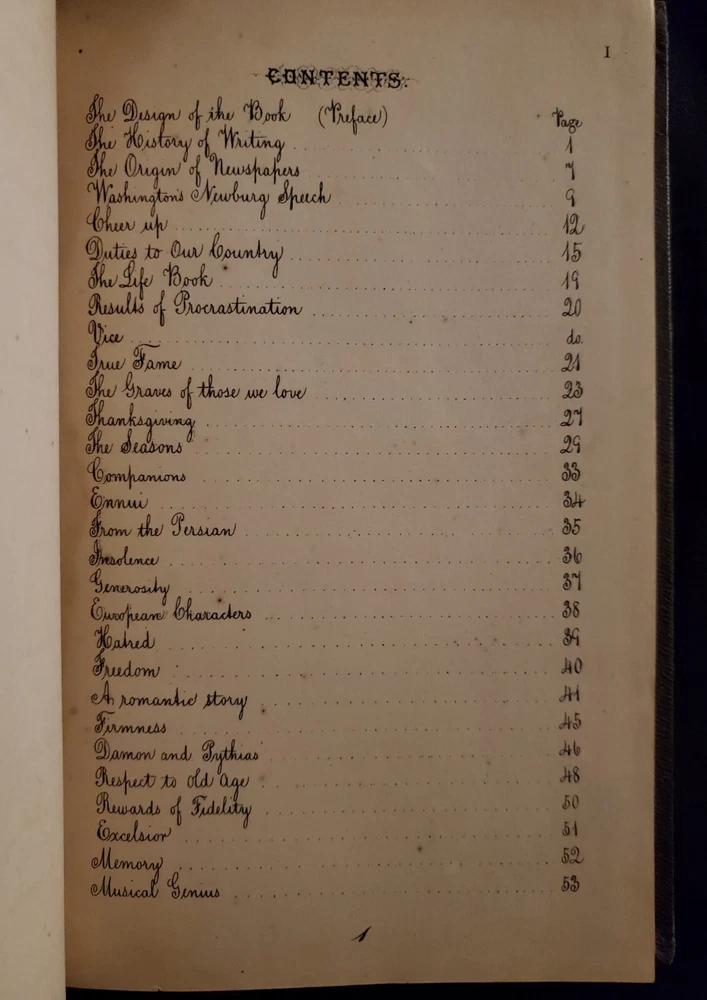 I
CONTENTS.
The Design of the Book (Preface) Page
The History of Writing 1
The Origin of Newspapers 7
Washington's Newburg Speech 9
Cheer up 12
Duties to Our Country 15
The Life Book 19
Results of Procrastination 20
Vice do.
True Fame 21
The Graves of those we love 23
Thanksgiving 27
The Seasons 29
Companions 33
Ennui 34
From the Persian 35
Insolence 36
Generosity 37
European Characters 38
Hatred 39
Freedom 40
A romantic story 41
Firmness 45
Damon and Pythias 46
Respect to old Age 48
Rewards of Fidelity 50
Excelsior 51
Memory 52
Musical Genius 53
1